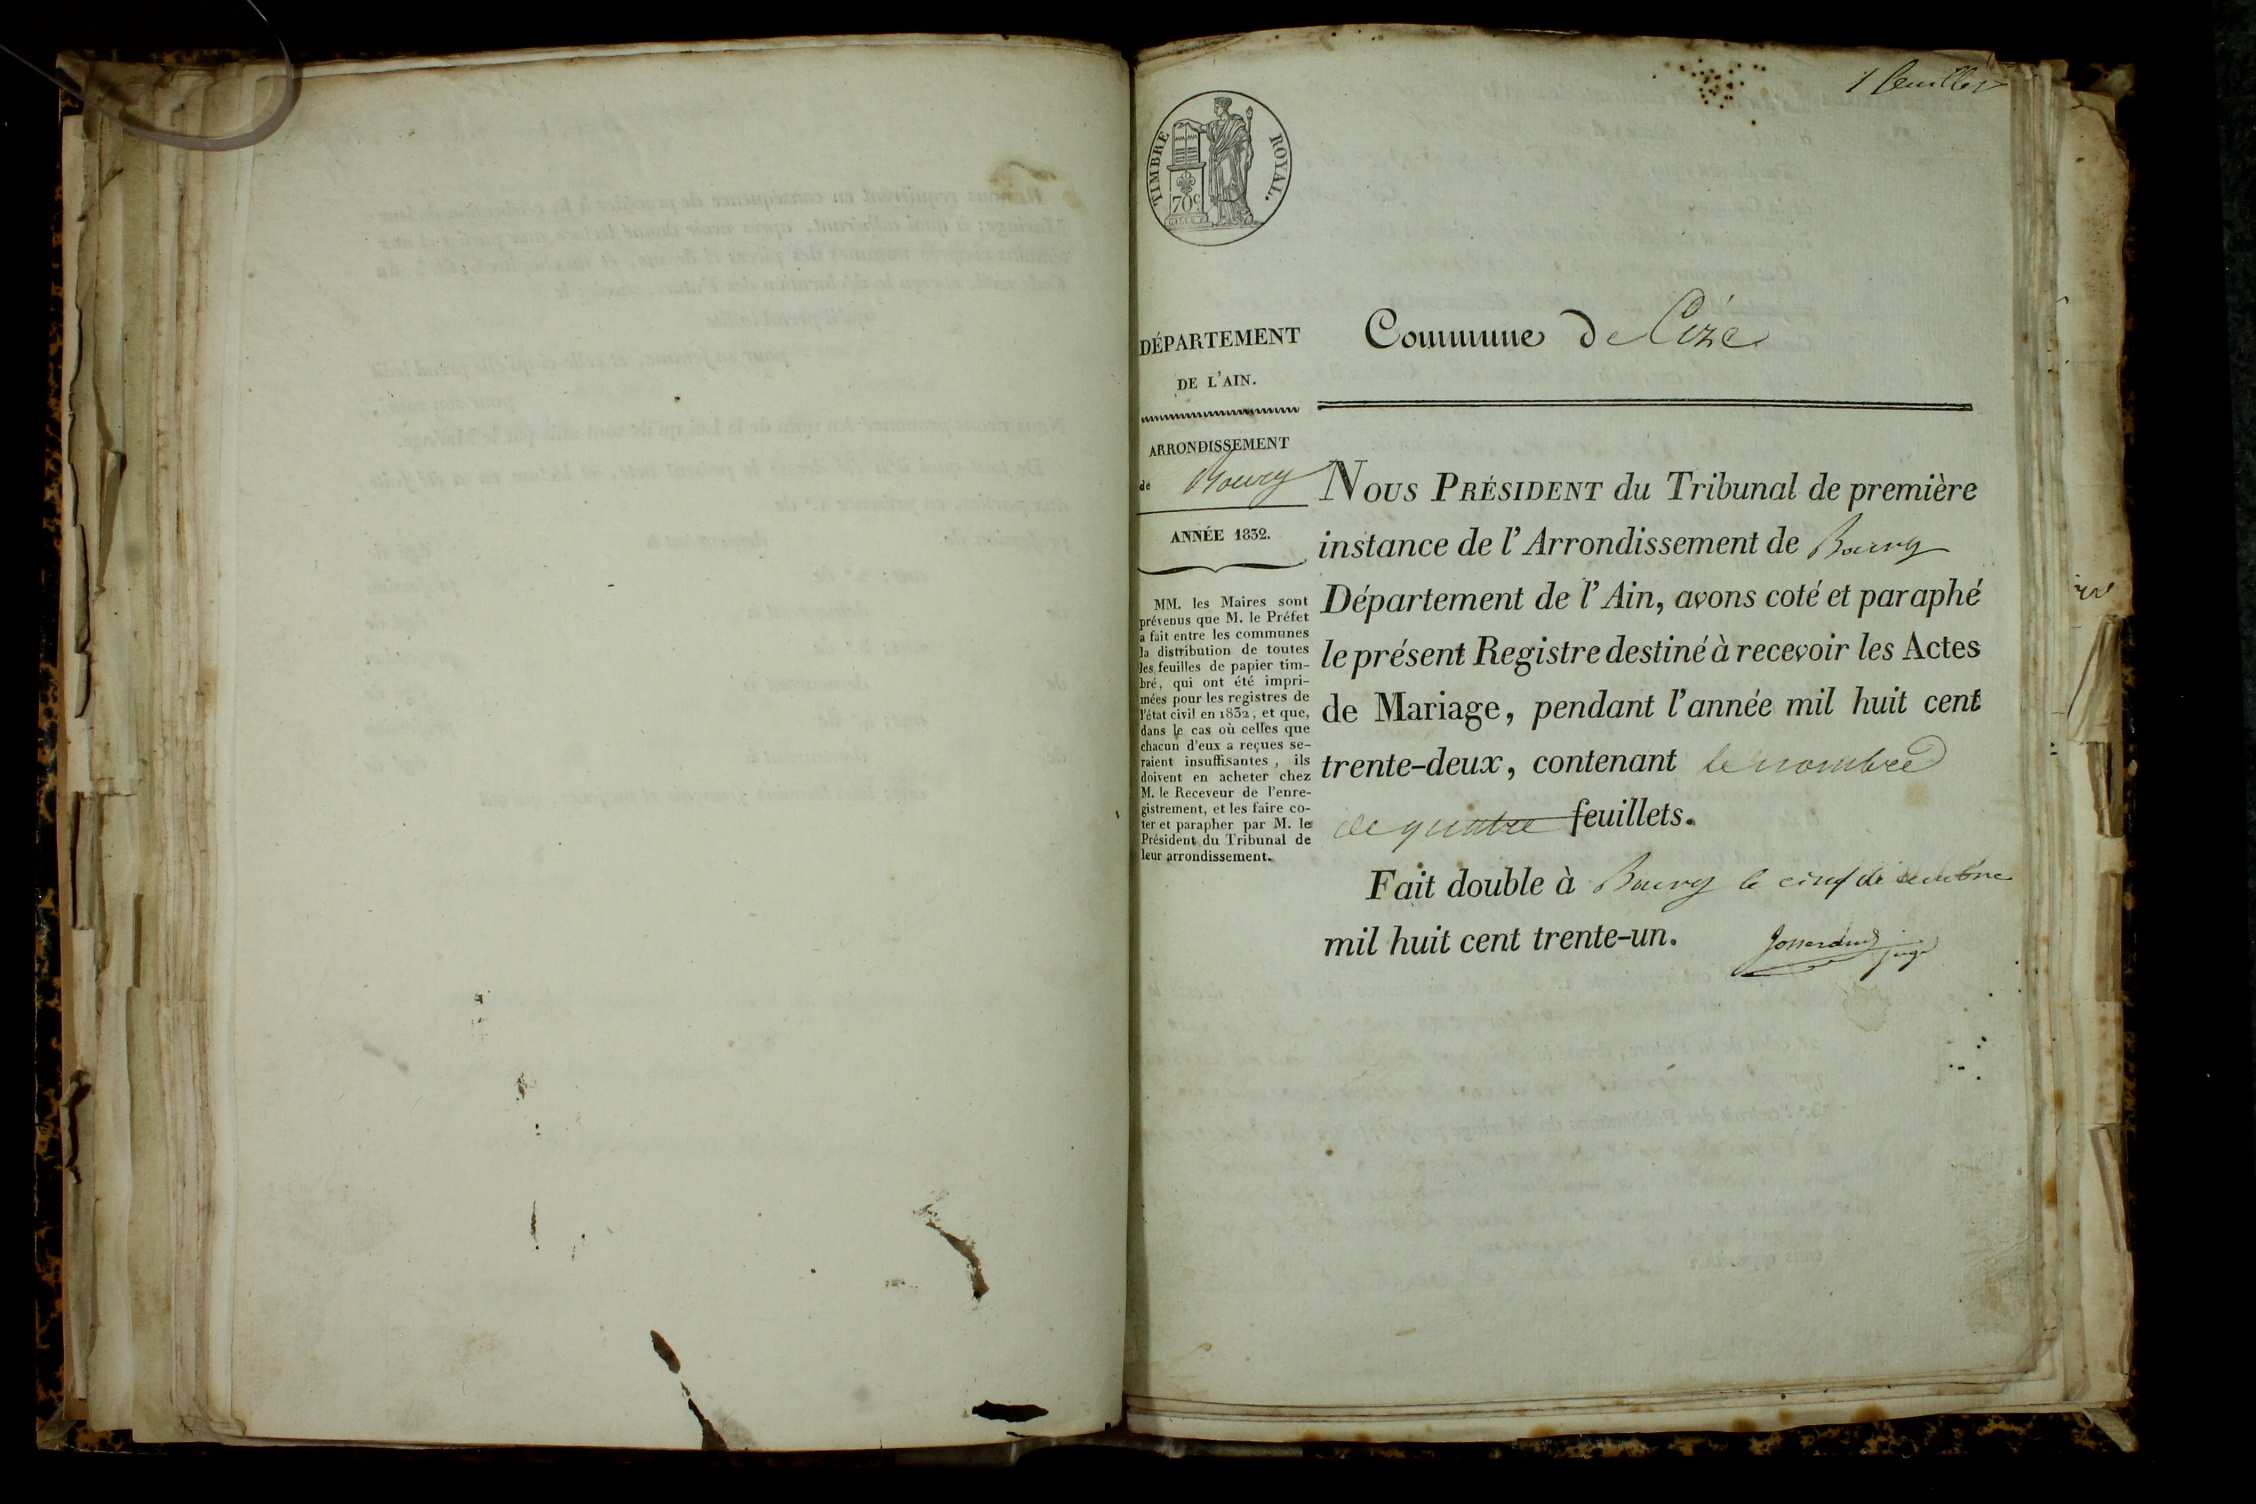 1 feuillet
TIMBRE ROYAL.
70c
DÉPARTEMENT
DE L'AIN.
ARRONDISSEMENT
de Bourg
ANNÉE 1832.
MM. les Maires sont
prévenus que M. le Préfet
a fait entre les communes
la distribution de toutes
les feuilles de papier tim-
bré, qui ont été impri-
mées pour les registres de
l'état civil en 1832, et que,
dans le cas où celles que
chacun d'eux a reçues se-
raient insuffisantes, ils
doivent en acheter chez
M. le Receveur de l'enre-
gistrement, et les faire co-
ter et parapher par M. le
Président du Tribunal de
leur arrondissement.
Commune de Cize
NOUS PRÉSIDENT du Tribunal de première
instance de l'Arrondissement de Bourg
Département de l'Ain, avons coté et paraphé
le présent Registre destiné à recevoir les Actes
de Mariage, pendant l'année mil huit cent
trente-deux, contenant le nombre
de quatre feuillets.
Fait double à Bourg le cinq décembre
mil huit cent trente-un.
juge